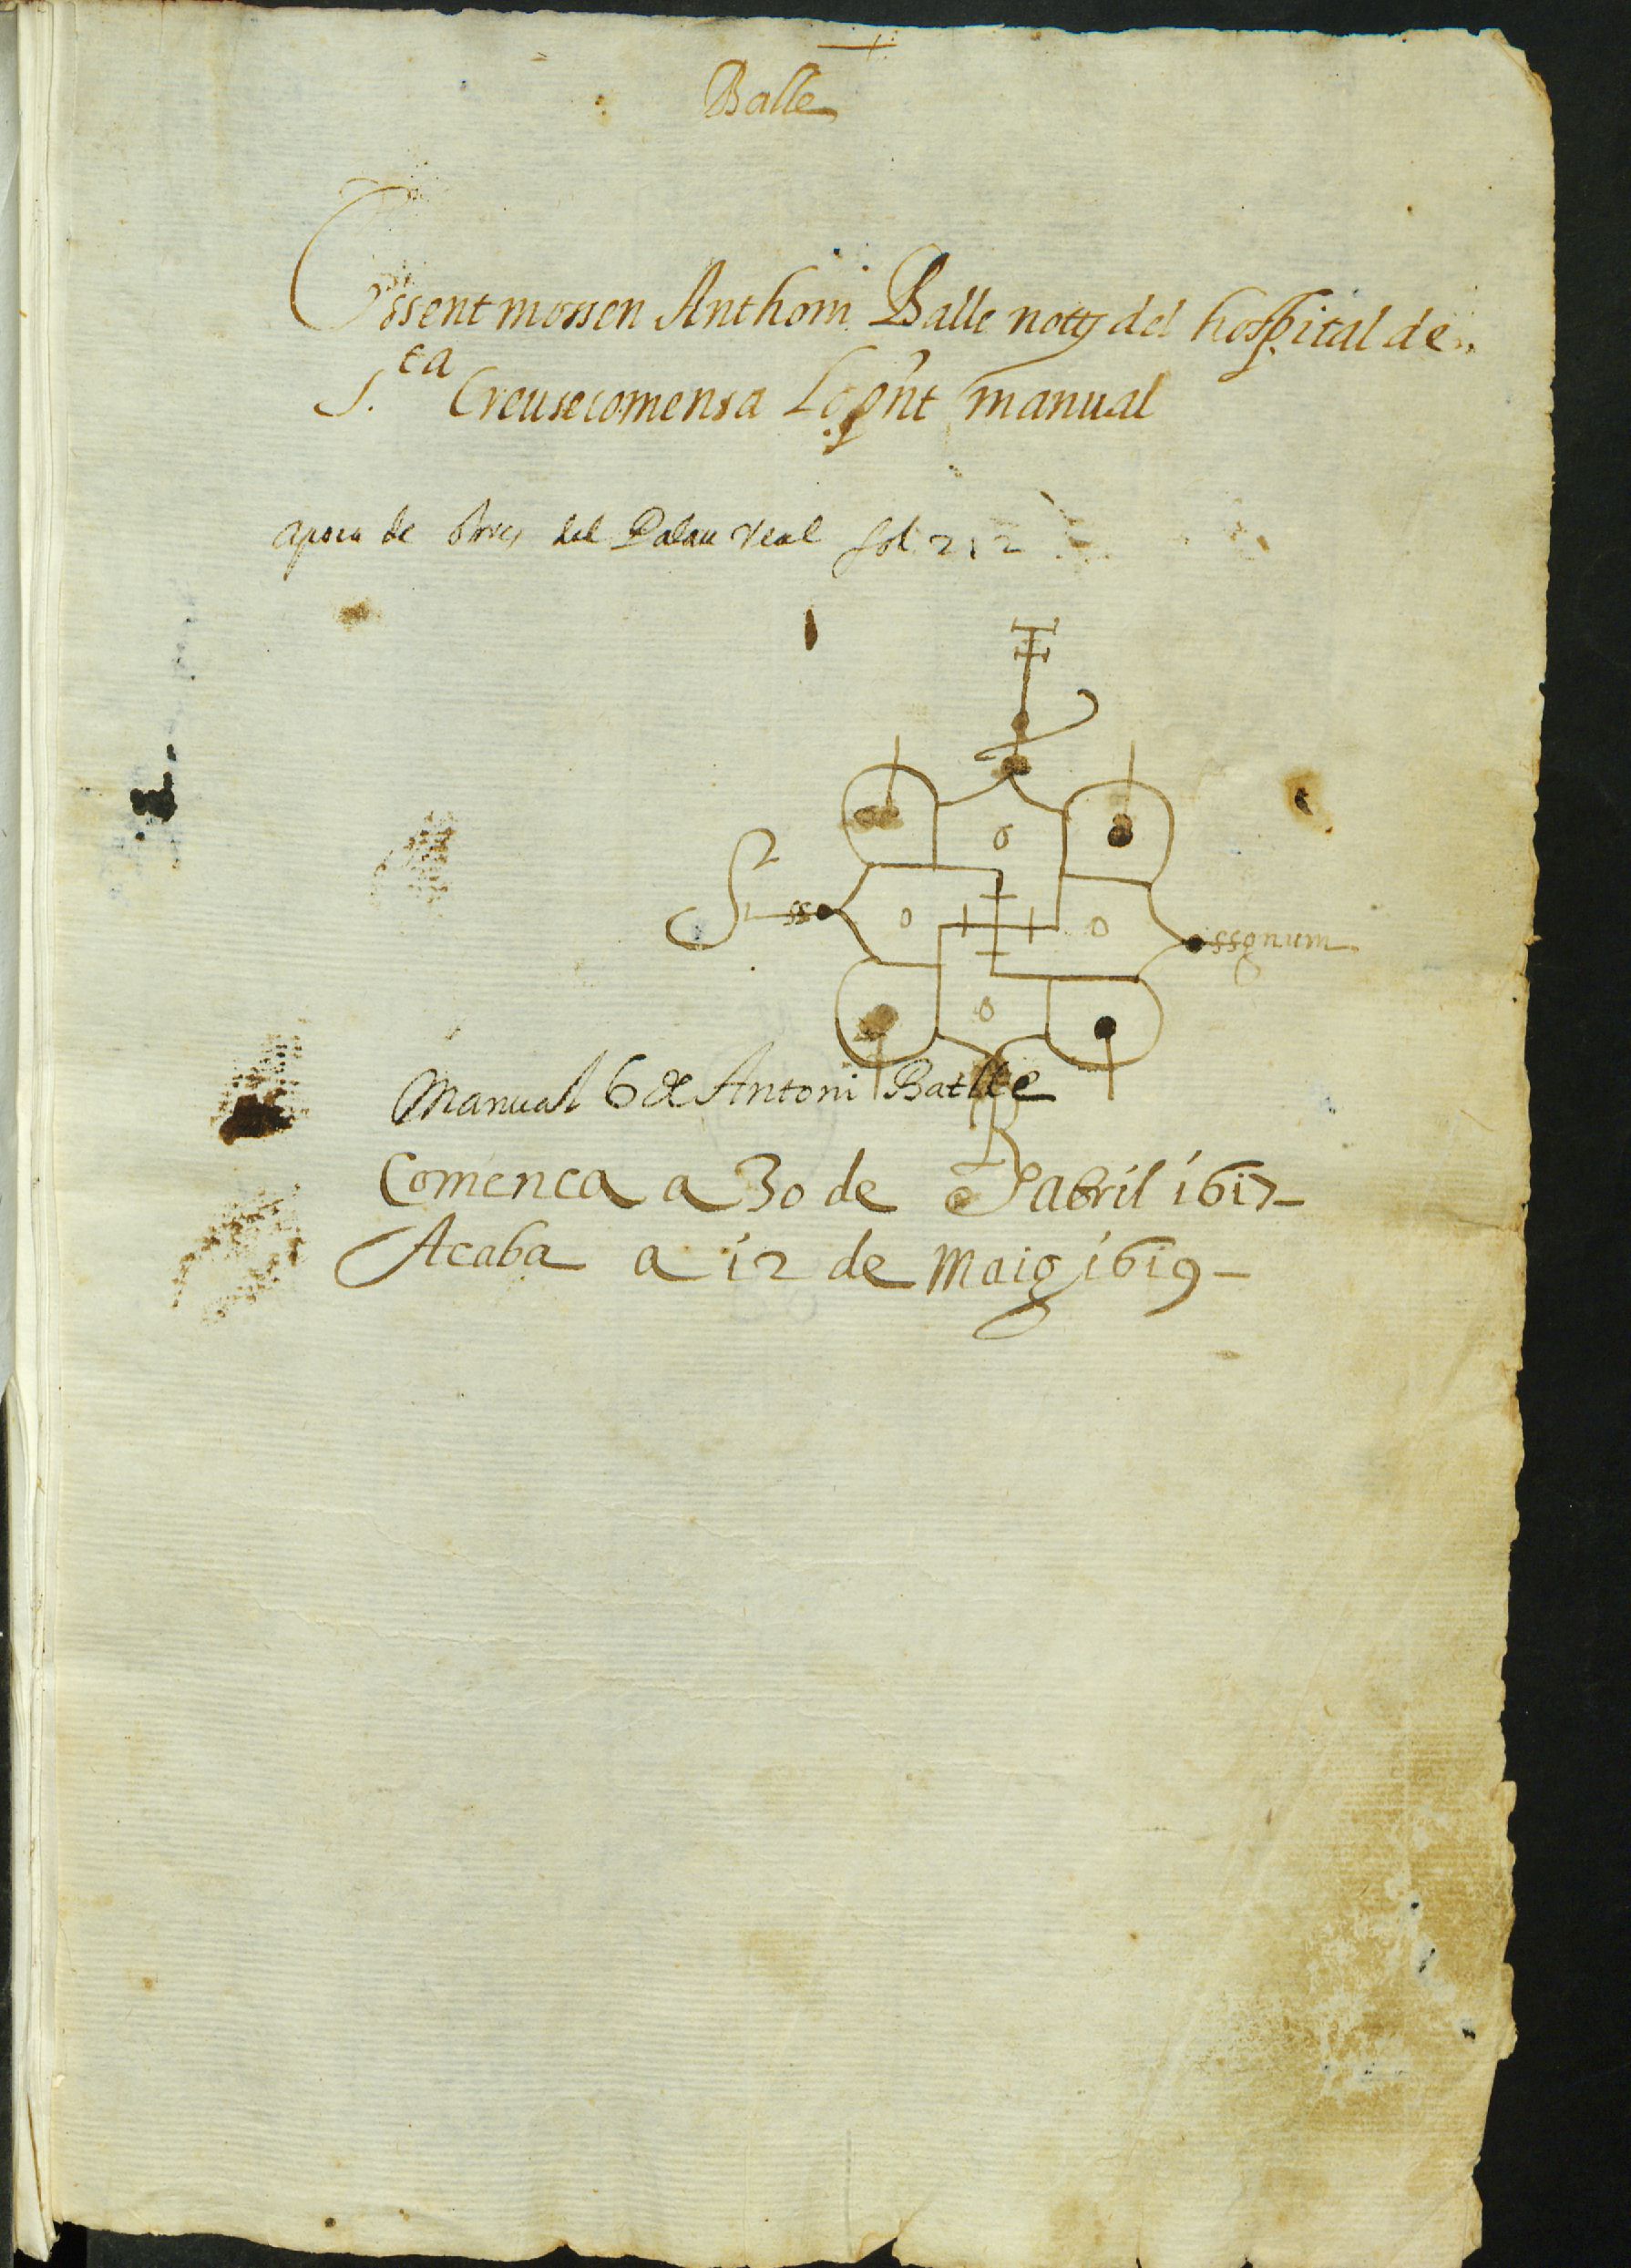 Balle
Essent mossen Anthoni Balle nott del hospital de
S.ta Creu se comensa Lo pnt manual
apoca de obres del Palau real fol 212
S ss ssgnum
Manual 6 de Antoni Batlle
Comenca a 30 de abril 1617
Acaba a 12 de Maig 1619